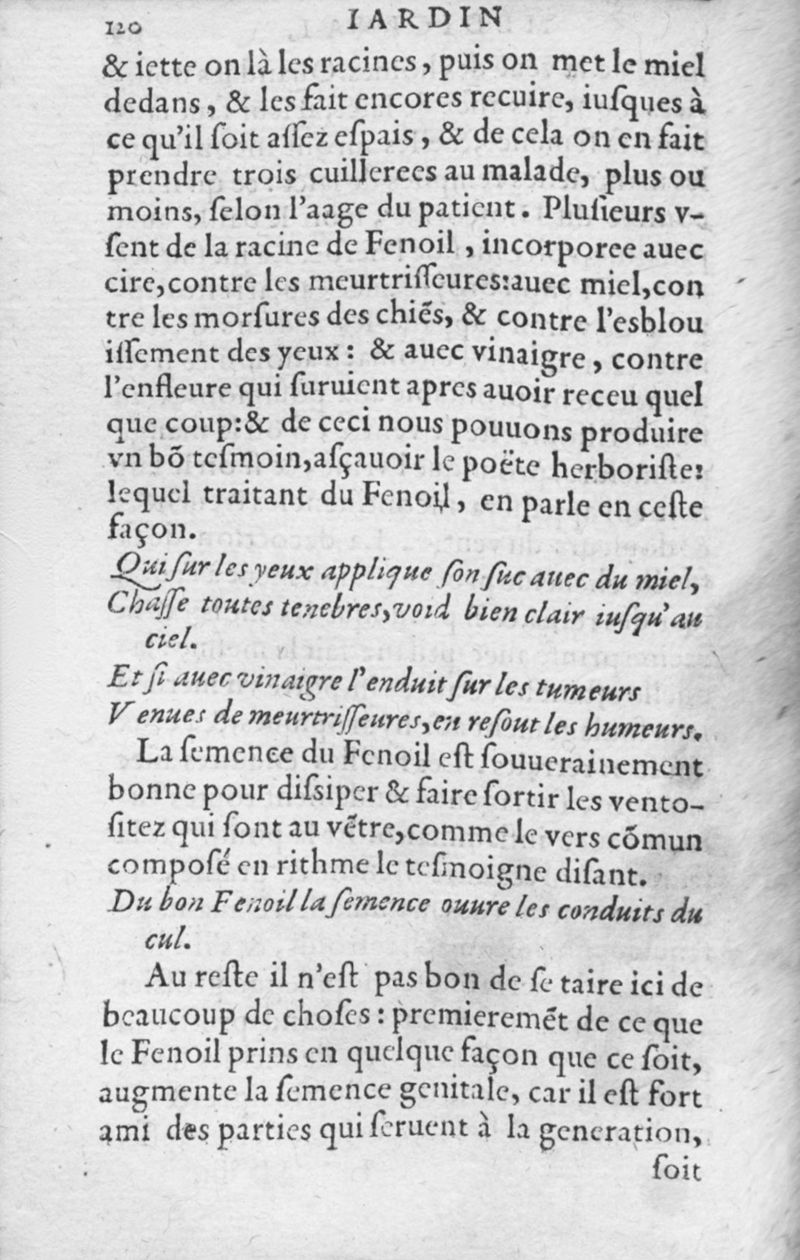 120 IARDIN
& iette on là les racines, puis on met le miel
dedans, & les fait encores recuire, iuſques à
ce qu'il ſoit aſſez eſpais, & de cela on en fait
prendre trois cuillerees au malade, plus ou
moins, ſelon l'aage du patient. Pluſieurs v-
ſent de la racine de Fenoil, incorporee auec
cire, contre les meurtriſſeures: auec miel, con
tre les morſures des chiẽs, & contre l'esblou
iſſement des yeux: & auec vinaigre, contre
l'enfleure qui ſuruient apres auoir receu quel
que coup: & de ceci nous pouuons produire
vn bõ teſmoin, aſçauoir le poëte herboriſte:
lequel traitant du Fenoil, en parle en ceſte
façon.
Qui ſur les yeux applique ſon ſuc auec du miel,
Chaſſe toutes tenebres, void bien clair iuſqu'au
ciel.
Et ſi auec vinaigre l'enduit ſur les tumeurs
Venues de meurtriſſeures, en reſout les humeurs.
La ſemence du Fenoil eſt ſouuerainement
bonne pour diſsiper & faire ſortir les vento-
ſitez qui ſont au vẽtre, comme le vers cõmun
compoſé en rithme le teſmoigne diſant.
Du bon Fenoil la ſemence ouure les conduits du
cul.
Au reſte il n'eſt pas bon de ſe taire ici de
beaucoup de choſes: premieremẽt de ce que
le Fenoil prins en quelque façon que ce ſoit,
augmente la ſemence genitale, car il eſt fort
ami des parties qui ſeruent à la generation,
ſoit